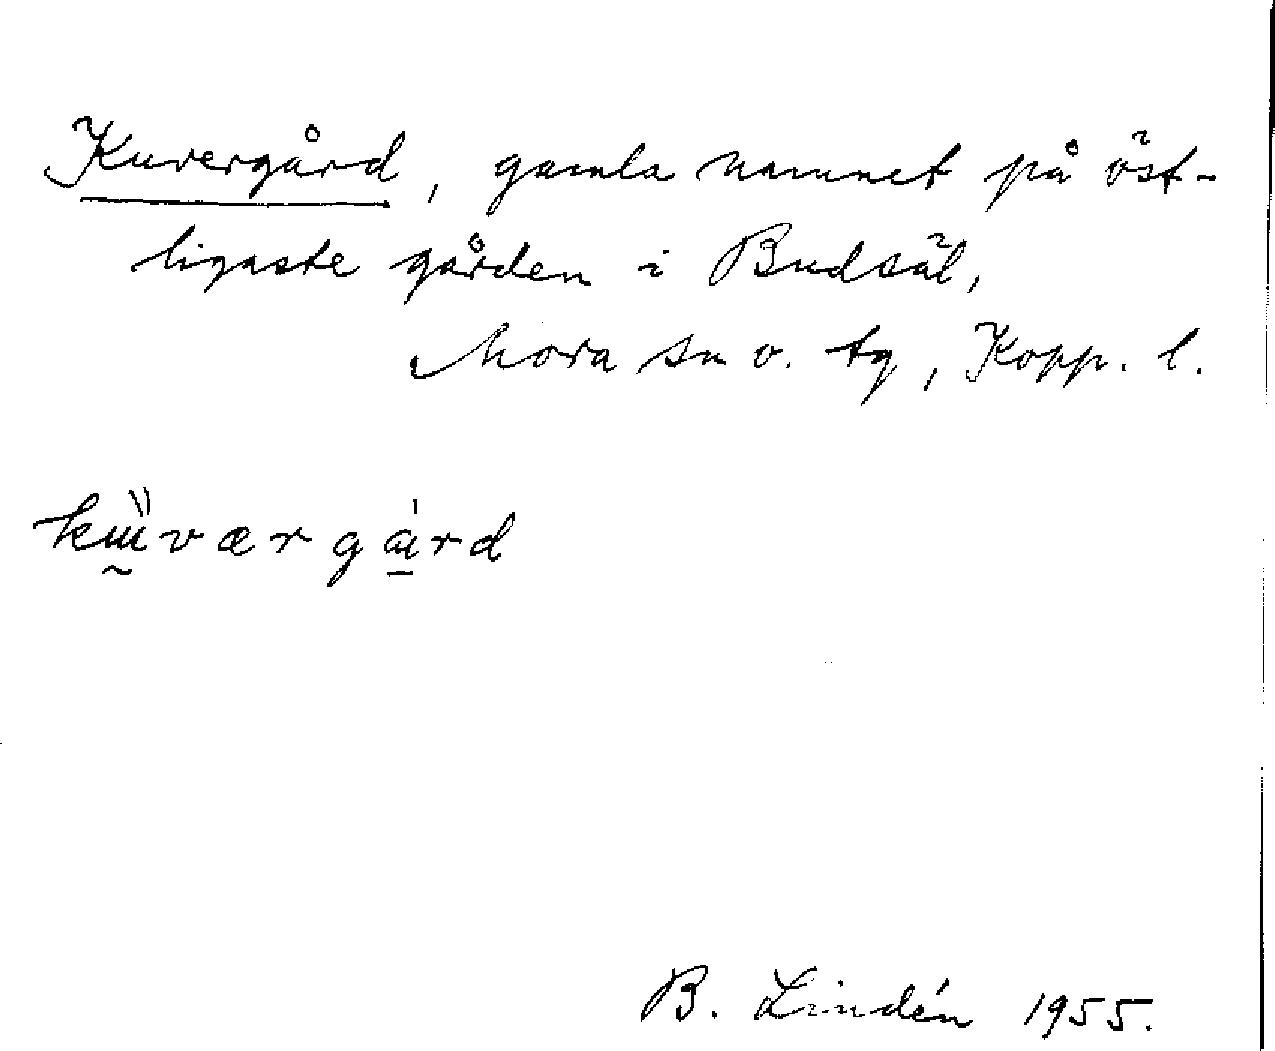 Kuvergård, gamla namnet på öst-
ligaste gården i Budsäl,
Mora sn o. tg, Kopp. l.
kɯ̰̋værga̱̍rd
B. Lindén 1955.